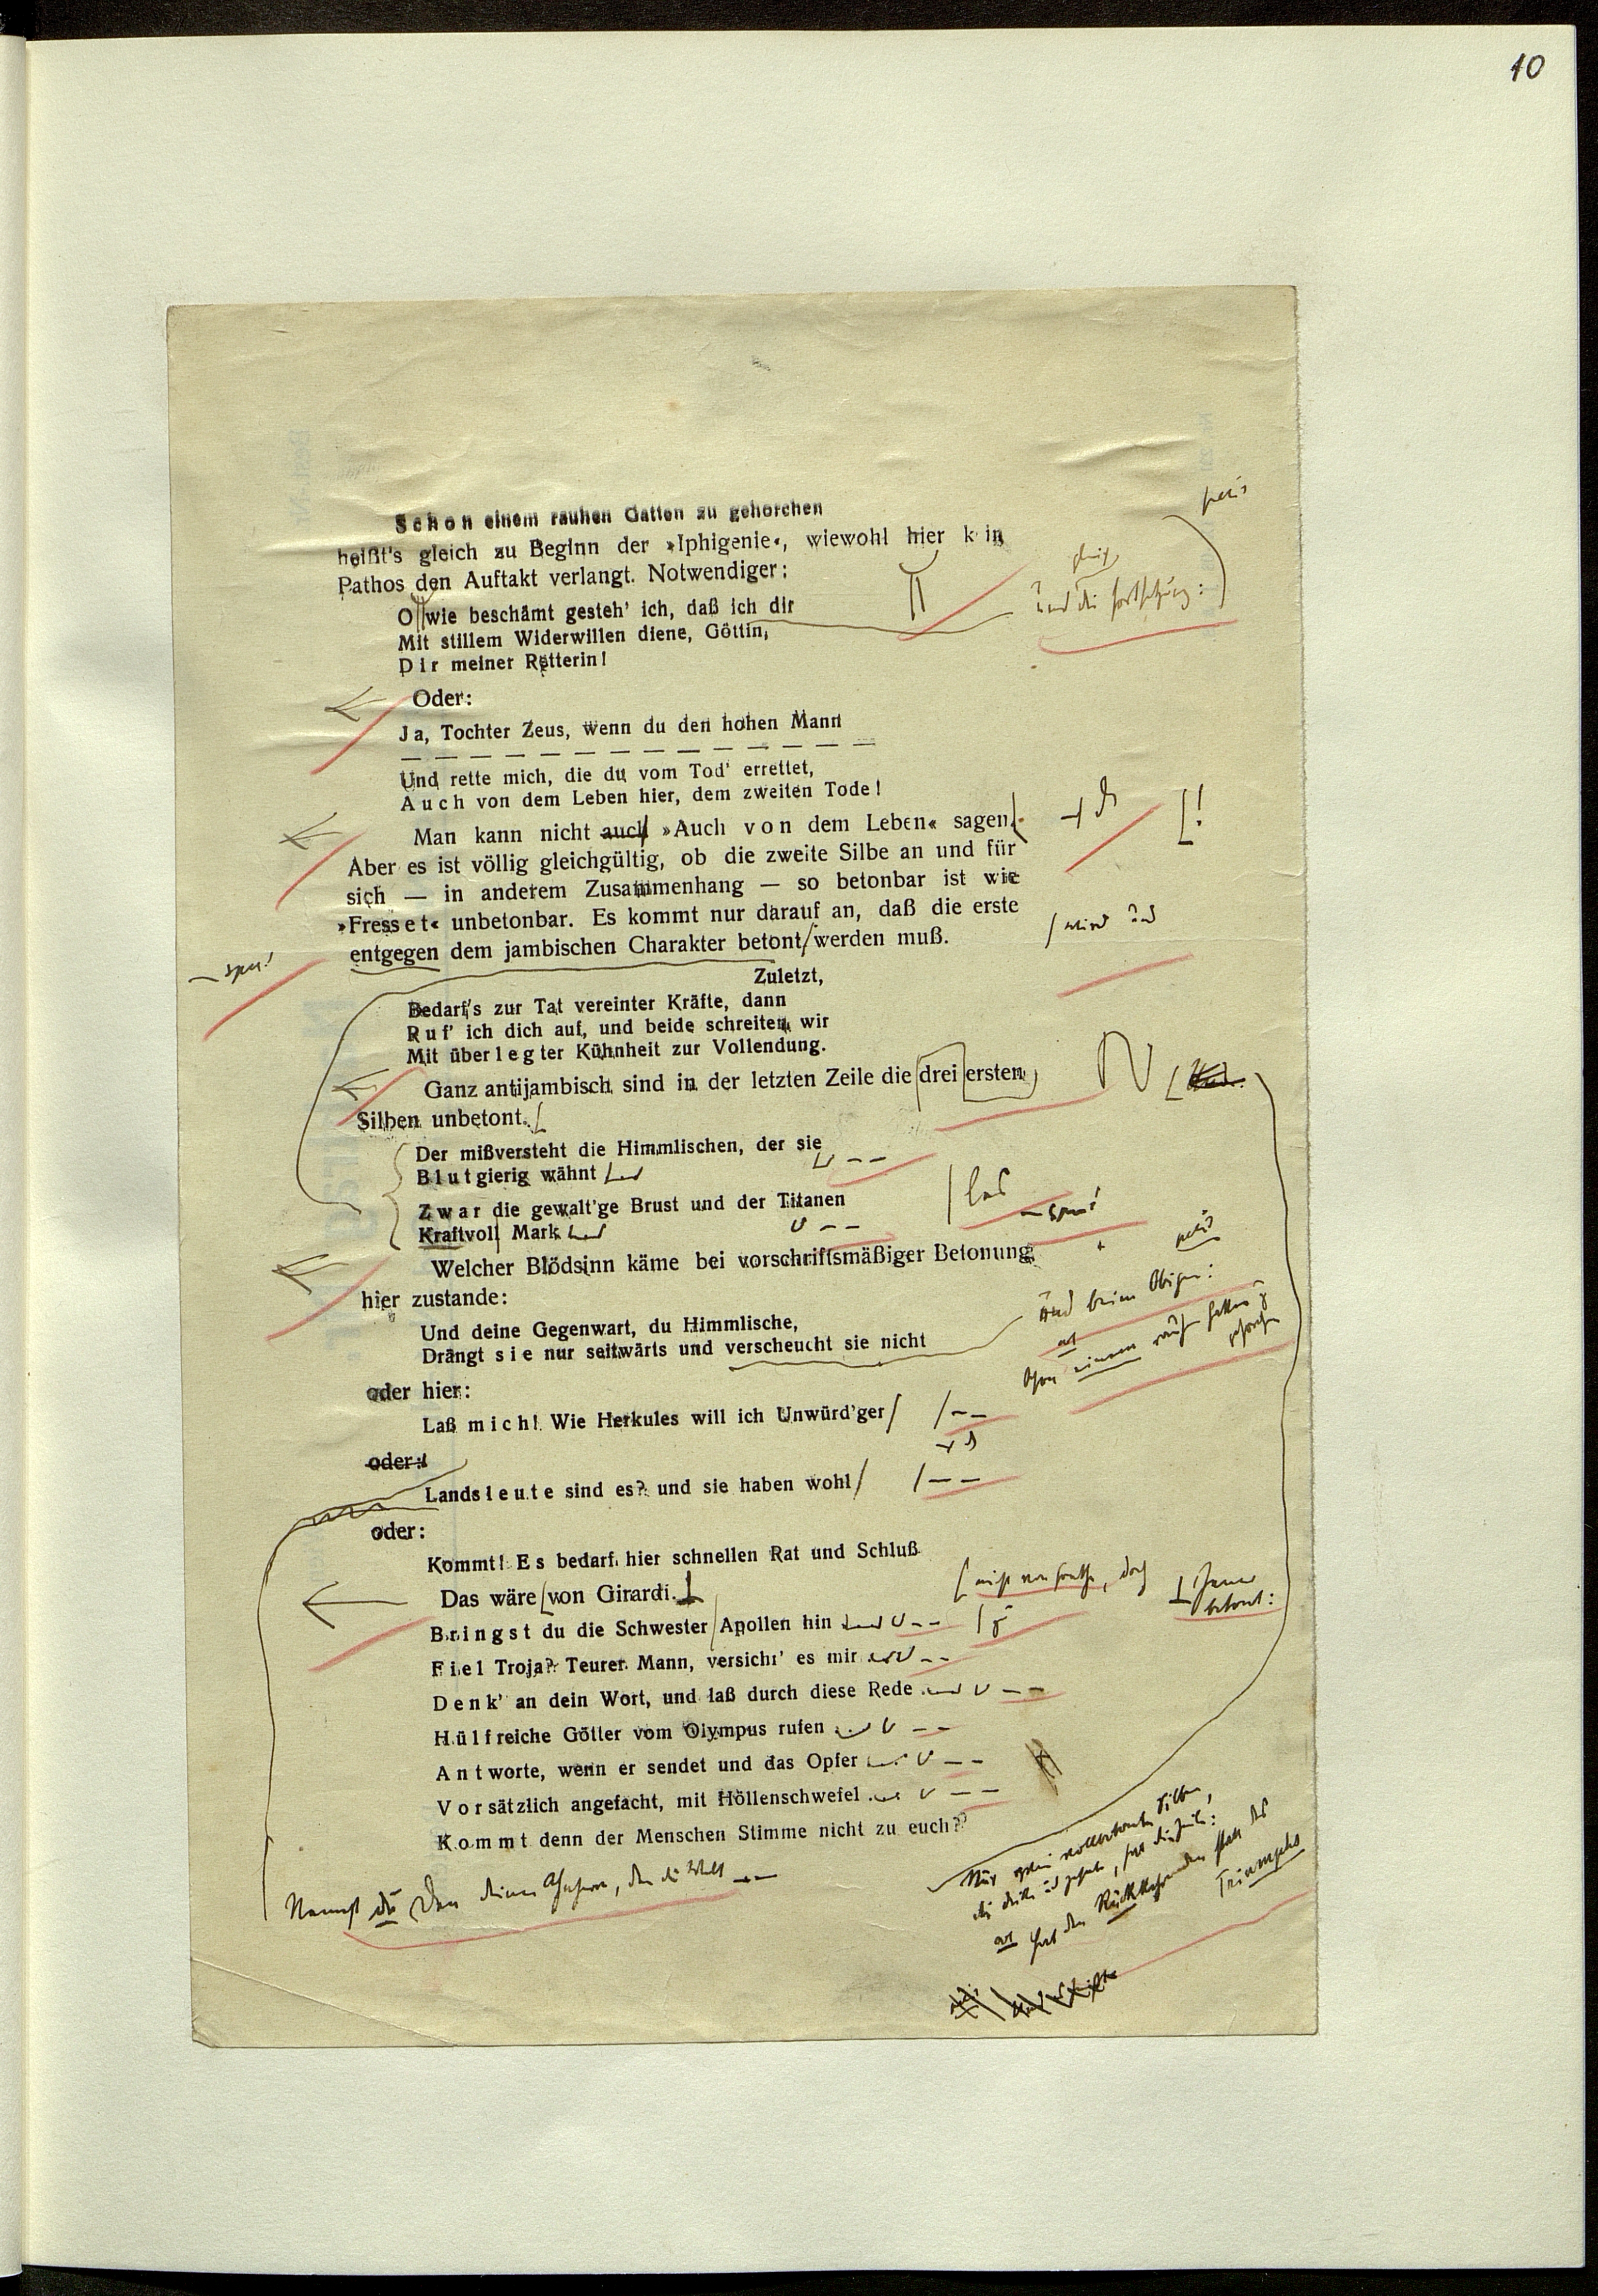 10
Schon einem rauhen Gatten zu gehorchen
heißt's gleich zu Beginn der »Iphigenie«, wiewohl hier k in
Pathos den Auftakt verlangt. Notwendiger:
O wie beschämt gesteh' ich, daß ich dir
Mit stillem Widerwillen diene, Göttin,
Dir meiner Retterin!
und die Fortsetzung:
Oder:
Ja, Tochter Zeus, wenn du den hohen Mann
— — — — — — — — — — — — — —
Und rette mich, die du vom Tod' errettet,
Auch von dem Leben hier, dem zweiten Tode!
Man kann nicht auch »Auch von dem Leben« sagen.
Aber es ist völlig gleichgültig, ob die zweite Silbe an und für
sich — in anderem Zusammenhang — so betonbar ist wie
»Fresset« unbetonbar. Es kommt nur darauf an, daß die erste
entgegen dem jambischen Charakter betont werden muß.
wird und
Zuletzt,
Bedarf's zur Tat vereinter Kräfte, dann
Ruf' ich dich auf, und beide schreiten wir
Mit überlegter Kühnheit zur Vollendung.
Ganz antijambisch sind in der letzten Zeile die drei ersten
Silben unbetont.
Der mißversteht die Himmlischen, der sie
Blutgierig wähnt
Zwar die gewalt'ge Brust und der Titanen
Kraftvoll Mark
Welcher Blödsinn käme bei vorschriftsmäßiger Betonung
hier zustande:
Und deine Gegenwart, du Himmlische,
Drängt sie nur seitwärts und verscheucht sie nicht
oder hier:
Laß mich! Wie Herkules will ich Unwürd'ger
oder:
Landsleute sind es? und sie haben wohl
oder:
Kommt! Es bedarf hier schnellen Rat und Schluß
Das wäre von Girardi.
Bringst du die Schwester Apollen hin
Fiel Troja? Teurer Mann, versichr' es mir
Denk' an dein Wort, und laß durch diese Rede
Hülfreiche Götter vom Olympus rufen
Antworte, wenn er sendet und das Opfer
Vorsätzlich angefacht, mit Höllenschwefel
Kommt denn der Menschen Stimme nicht zu euch?
Nennst du Den deinen Ahnherrn, den die Welt
Rückkehrenden statt des
Triumphs